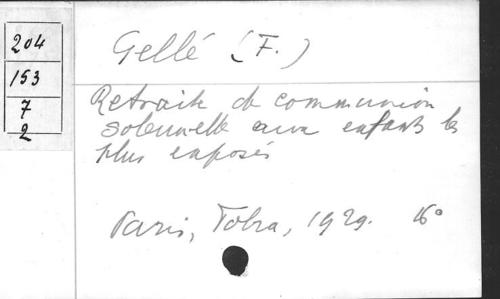 204
153
7
2
Gellé (F.)
Retraite de communion
solennelle aux enfants les
plus exposés
Paris, Tolra, 1929. 16°